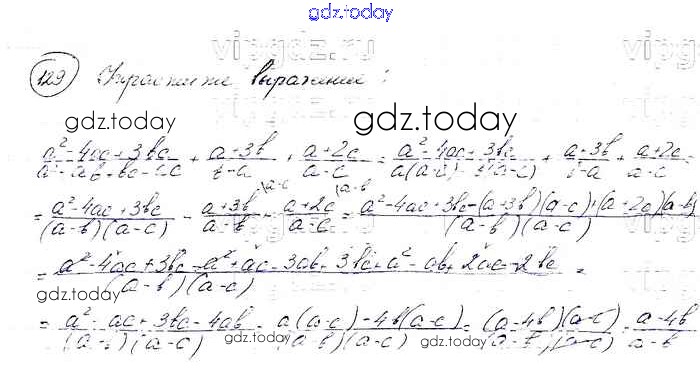 gdz.today
vipgdz.ru
129 Упростите выражение:
gdz.today
gdz.today
(a²-4ac+3bc)/(a²-ab+bc-ac) + (a+3b)/(b-a) + (a+2c)/(a-c) = (a²-4ac+3bc)/(a(a-b)-c(a-b)) + (a+3b)/(b-a) + (a+2c)/(a-c)
= (a²-4ac+3bc)/((a-b)(a-c)) - (a+3b)/(a-b) |a-c + (a+2c)/(a-c) |a-b = (a²-4ac+3bc-(a+3b)(a-c)+(a+2c)(a-b))/((a-b)(a-c))
= (a²-4ac+3bc-a²+ac-3ab+3bc+a²-ab+2ac-2bc)/((a-b)(a-c)) =
gdz.today
vipgdz.ru
= (a²-ac+3bc-4ab)/((a-b)(a-c)) = (a(a-c)-4b(a-c))/((a-b)(a-c)) = ((a-4b)(a-c))/((a-b)(a-c)) = (a-4b)/(a-b)
gdz.today
gdz.today